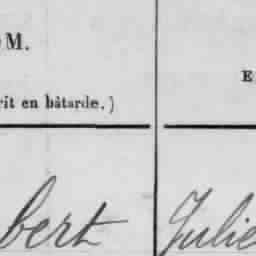 OM.
E
rit en bâtarde.)
bert Julie